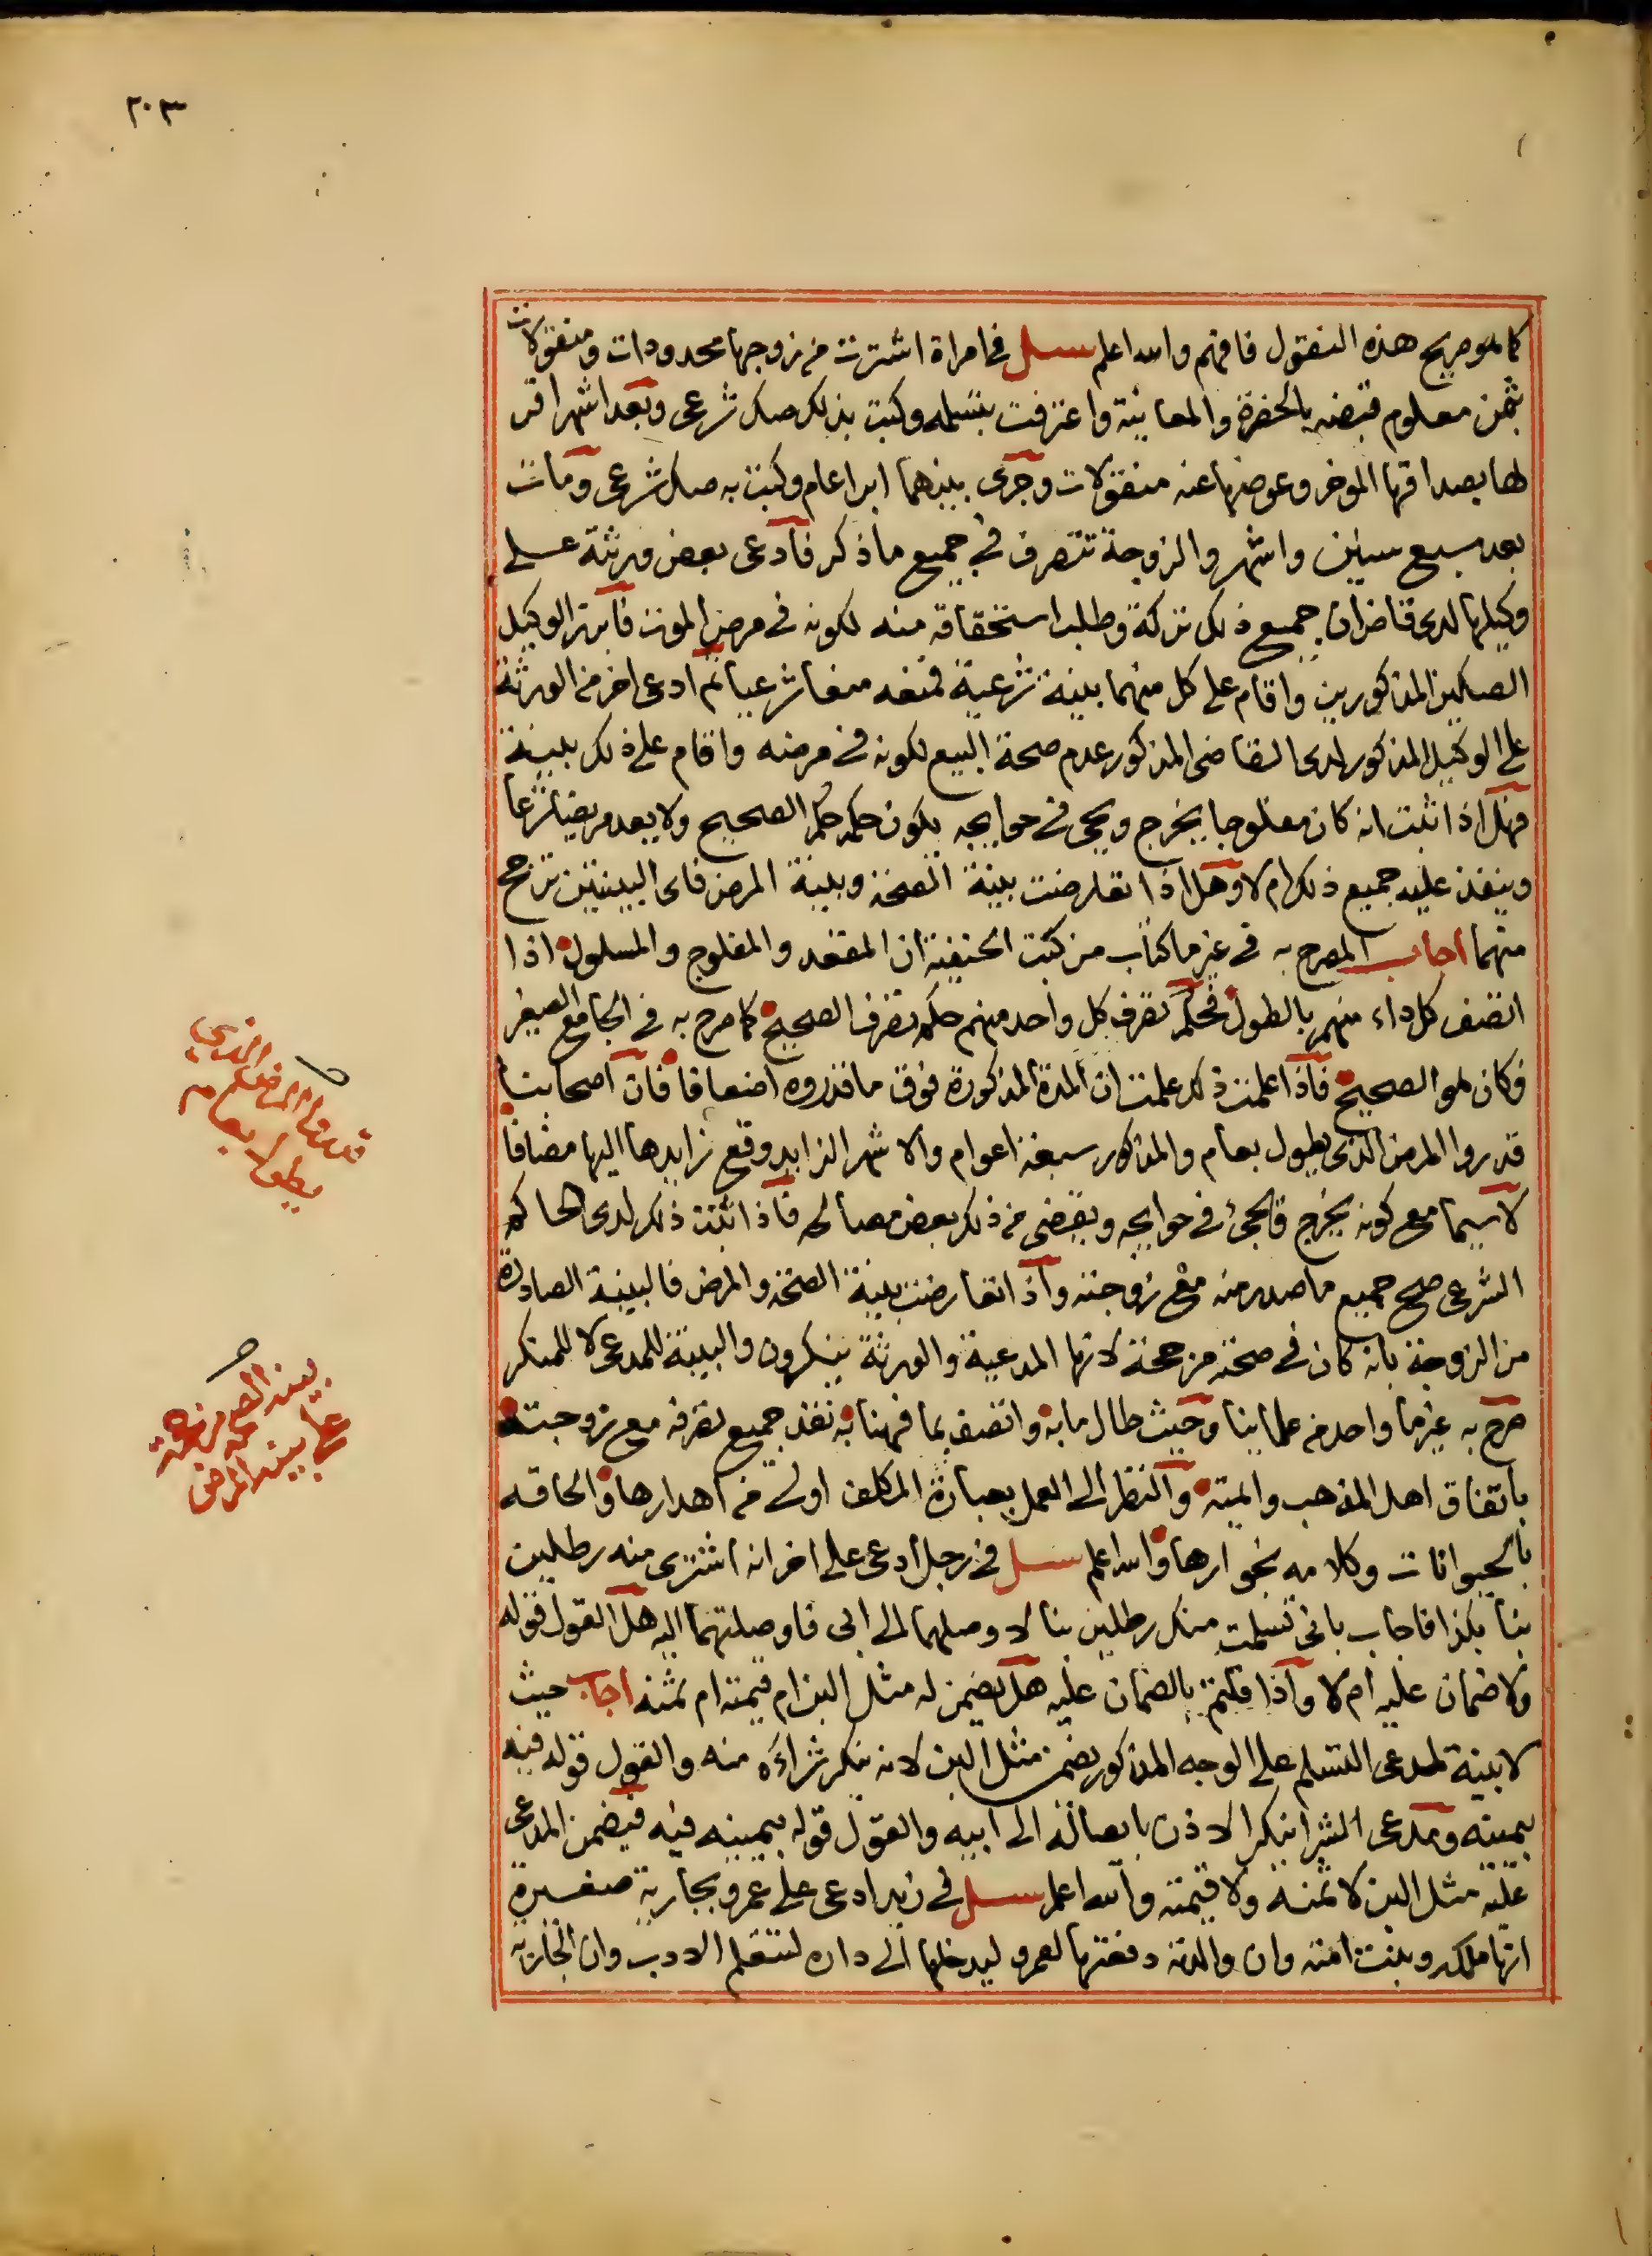 ٢٠٣
كما هو صريح هذه النقول فافهم والله اعلم سئل في امراة اشترت من زوجها محدودات ومنقولات
بثمن معلوم قبضه بالحضرة والمعاينة واعترفت بتسلمه وكتبت بذلك صك شرعي وبعد اشهر اقر
لها بصداقها الموخر وعوضها عنه منقولات وجرى بينهما ابرا عام وكتبت به صك شرعي ومات
بعد سبع سنين واشهر والزوجة تتصرف في جميع ما ذكر فادعى بعض ورثته على
وكيلها لدى قاض ان جميع ذلك تركة وطلب استحقاقه منه لكونه في مرض الموت فابرز الوكيل
الصكين المذكورين واقام على كل منهما بينة شرعية فمنعه منعا شرعيا ثم ادعى اخر من الورثة
على الوكيل المذكور لدى القاضي المذكور عدم صحة البيع لكونه في مرضه واقام على ذلك بينة
فهل اذا ثبت انه كان مفلوجا يخرج ويجي في حوايجه يكون حكمه حكم الصحيح ولا يعد مريضا شرعا
وينفذ عليه جميع ذلك ام لا وهل اذا تعارضت بينة الصحة وبينة المرض فاى البينتين ترجح
منهما اجاب المصرح به في غير ما كتاب من كتب الحنفية ان المقعد والمفلوج والمسلول اذا
اتصف كل داء منهم بالطول فحكم تصرف كل واحد منهم حكم تصرف الصحيح كما صرح به في الجامع الصغير
فكان هو الصحيح فاذا علمت ذلك علمت ان المدة المذكورة فوق ما قدروه اضعافا فان اصحابنا
قدروا المرض الذى يطول بعام والمذكور سبعة اعوام والاشهر الزايد وقع زايدها اليها مضافا
لا سيما مع كونه يخرج ويجئ في حوايجه ويقضي من ذلك بعض مصالحه فاذا ثبت ذلك لدى الحاكم
الشرعي صح جميع ما صدر منه مع زوجته واذا تعارضت بينة الصحة والمرض فالبينة الصادرة
من الزوجة بانه كان في صحته مرجحة لانها المدعية والورثة ينكرون والبينة للمدعى لا للمنكر
صرح به غير ما واحد من علماينا وحيث طال ما به واتصف بما فهنا به نفذ جميع تصرفه مع زوجته
باتفاق اهل المذهب والميته والنظر الى العمل بعبارة المكلف اولى من اهدارها والحاقه
بالحيوانات وكلامه بخوارها والله اعلم سئل في رجل ادعى على اخر انه اشترى منه رطلين
بنا بكذا فاجاب بانى تسلمت منك رطلين بنا لاوصلهما الى ابى فاوصلتهما اليه هل القول قوله
ولا ضمان عليه ام لا واذا قلتم بالضمان عليه هل يضمن له مثل البن ام قيمته ام ثمنه اجاب حيث
لا بينة لمدعى التسلم على الوجه المذكور يضمن مثل البن لانه ينكر شراءه منه والقول قوله فيه
بيمينه ومدعى الشرا ينكر الاذن بايصاله الى ابيه والقول قوله بيمينه فيه فيضمن المدعى
عليه مثل البن لا ثمنه ولا قيمته والله اعلم سئل في زيد ادعى على عمرو بجارية صغيرة
انها ملكه وبنت امته وان والدته دفعتها لعمرو ليدخلها الى داره لتتعلم الادب وان الجارية
قدروا المرض الذي
يطول بعام
بينة الصحة مرجحة
على بينة المرض